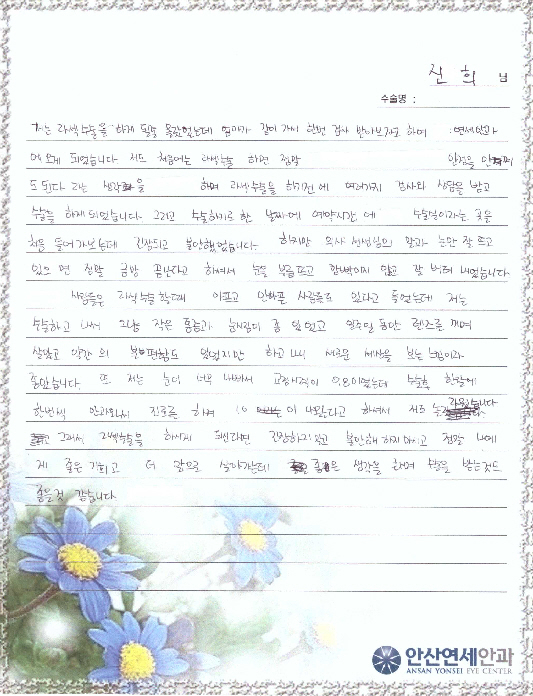 진희 님
수술명 :
저는 라섹수술을 하게 될줄 몰랐었는데 엄마가 같이 가서 한번 검사 받아보자고 하여 연세안과
에 오게 되었습니다 저도 처음에는 라섹수술 하면 정말 안경을 안껴
도 된다 라는 생각을 하며 라섹수술을 하기전에 여러가지 검사와 상담을 받고
수술을 하게 되었습니다. 그리고 수술하기로 한 날짜에 예약시간에 수술실이라는 곳을
처음 들어가보는데 긴장되고 불안했었습니다. 하지만 의사 선생님의 말과 눈만 잘 뜨고
있으면 정말 금방 끝난다고 하셔서 눈을 부릅뜨고 깜빡이지 않고 잘 버텨 내었습니다
사람들은 라식수술 할때 아프고 안아픈 사람들도 있다고 들었는데 저는
수술하고 나서 그냥 작은 통증과 눈시림이 좀 있었고 일주일 동안 렌즈를 끼며
살았고 약간의 불편함도 있었지만 하고나니 새로운 세상을 보는 느낌이라
좋았습니다. 또 저는 눈이 너무 나빠서 교정시력이 0.8이였는데 수술후 한달에
한번씩 안과와서 진료를 하며 1.0 이 나왔다고 하셔서 저도 놀라웠습니다
그래서 라섹수술을 하시게 되신다면 긴장하지 않고 불안해 하지 마시고 정말 나에
게 좋은 기회고 더 앞으로 살아가는데 좋은 생각을 하며 수술을 받는것도
좋을것 같습니다
안산연세안과
ANSAN YONSEI EYE CENTER